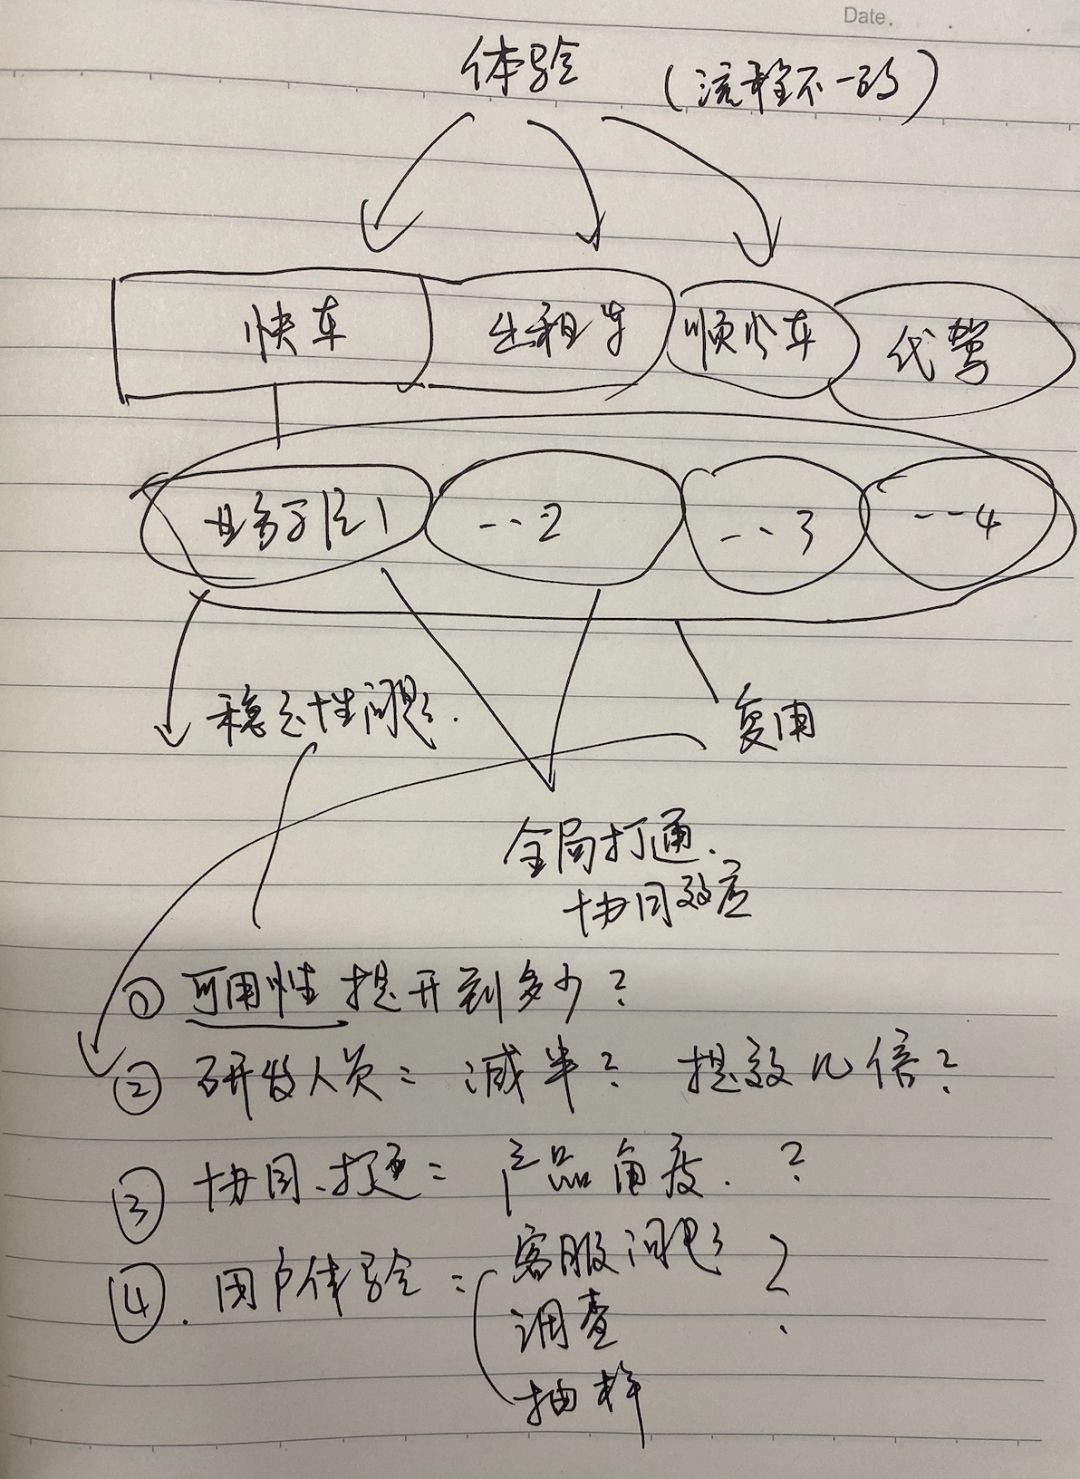 Date.
体验 (流程不一致)
快车 出租车 顺风车 代驾
业务子层1 --2 --3 --4
稳定性问题. 复用
全局打通.
协同效应
① 可用性 提升到多少?
② 研发人员: 减半? 提效几倍?
③ 协同、打通: 产品角度. ?
④. 用户体验: 客服问题 ?
调查
抽样